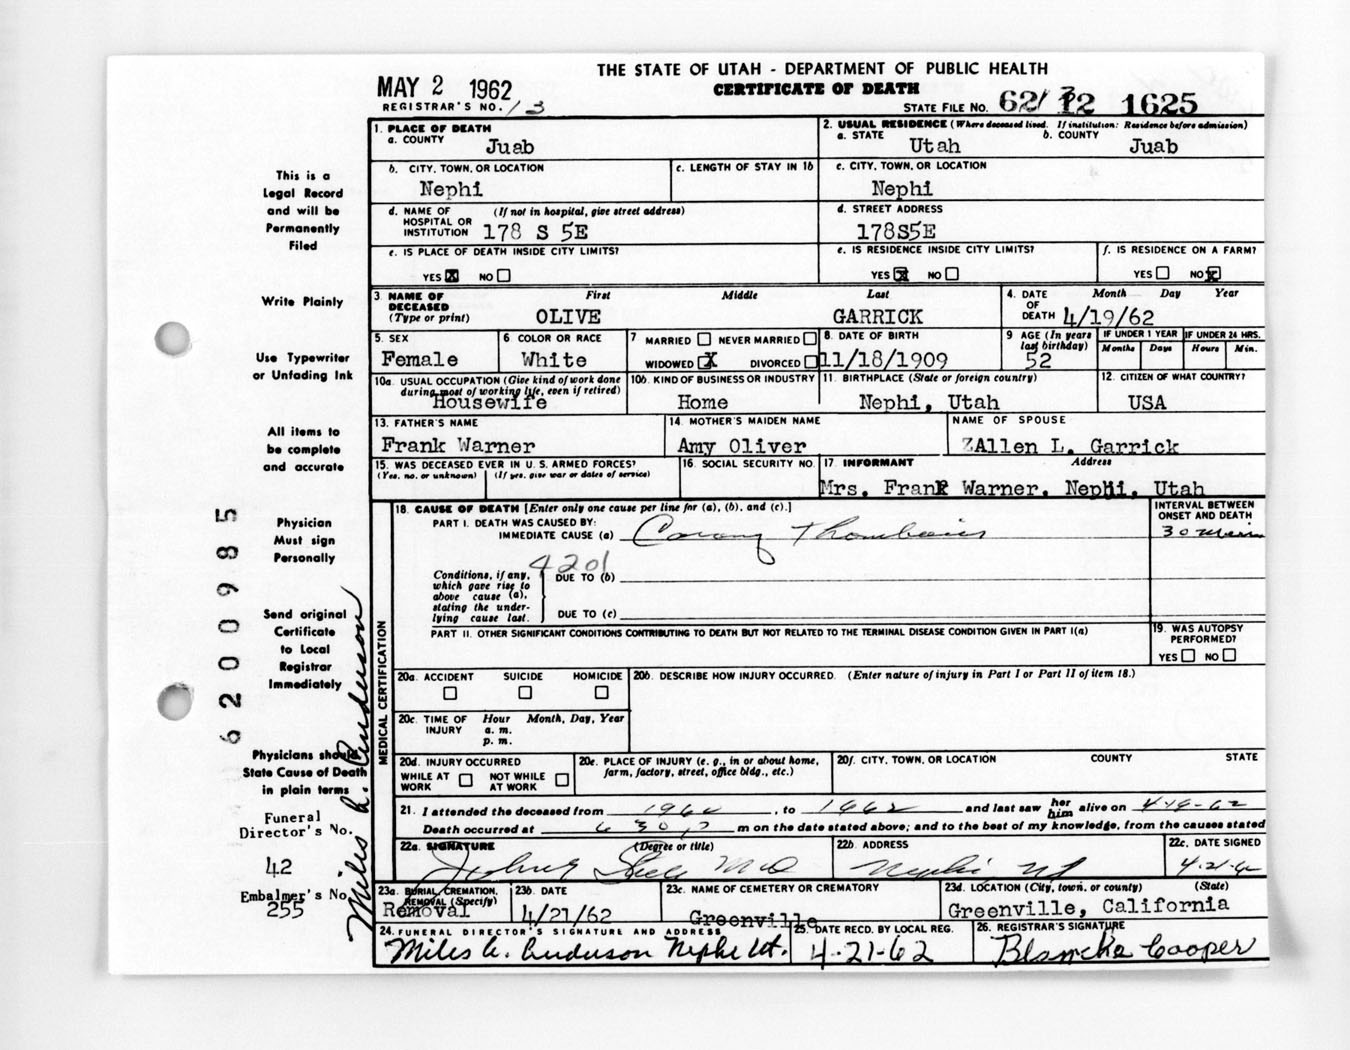 THE STATE OF UTAH - DEPARTMENT OF PUBLIC HEALTH
MAY 2 1962
CERTIFICATE OF DEATH
REGISTRAR'S NO. 13
STATE FILE NO. 62 12 1625
1. PLACE OF DEATH
a. COUNTY
Juab
2. USUAL RESIDENCE (Where deceased lived. If institution: Residence before admission)
a. STATE b. COUNTY
Utah Juab
b. CITY, TOWN, OR LOCATION
Nephi
c. LENGTH OF STAY IN 1b
c. CITY, TOWN, OR LOCATION
Nephi
d. NAME OF HOSPITAL OR INSTITUTION (If not in hospital, give street address)
178 S 5E
d. STREET ADDRESS
178S5E
e. IS PLACE OF DEATH INSIDE CITY LIMITS?
YES X NO
e. IS RESIDENCE INSIDE CITY LIMITS?
YES X NO
f. IS RESIDENCE ON A FARM?
YES NO X
3. NAME OF DECEASED (Type or print) First Middle Last
OLIVE GARRICK
4. DATE OF DEATH Month Day Year
4/19/62
5. SEX
Female
6 COLOR OR RACE
White
7 MARRIED NEVER MARRIED
WIDOWED X DIVORCED
8. DATE OF BIRTH
11/18/1909
9 AGE (In years last birthday)
52
IF UNDER 1 YEAR
Months Days
IF UNDER 24 HRS.
Hours Min.
10a. USUAL OCCUPATION (Give kind of work done during most of working life, even if retired)
Housewife
10b. KIND OF BUSINESS OR INDUSTRY
Home
11. BIRTHPLACE (State or foreign country)
Nephi, Utah
12. CITIZEN OF WHAT COUNTRY?
USA
13. FATHER'S NAME
Frank Warner
14. MOTHER'S MAIDEN NAME
Amy Oliver
NAME OF SPOUSE
ZAllen L. Garrick
15. WAS DECEASED EVER IN U. S. ARMED FORCES?
(Yes, no, or unknown) (If yes, give war or dates of service)
16. SOCIAL SECURITY NO.
17. INFORMANT Address
Mrs. Frank Warner. Nephi. Utah
18. CAUSE OF DEATH [Enter only one cause per line for (a), (b), and (c).]
PART I. DEATH WAS CAUSED BY:
IMMEDIATE CAUSE (a)
INTERVAL BETWEEN ONSET AND DEATH
30
4201
Conditions, if any, which gave rise to above cause (a), stating the underlying cause last.
DUE TO (b)
DUE TO (c)
PART II. OTHER SIGNIFICANT CONDITIONS CONTRIBUTING TO DEATH BUT NOT RELATED TO THE TERMINAL DISEASE CONDITION GIVEN IN PART I(a)
19. WAS AUTOPSY PERFORMED?
YES NO
20a. ACCIDENT SUICIDE HOMICIDE
20b. DESCRIBE HOW INJURY OCCURRED. (Enter nature of injury in Part I or Part II of item 18.)
20c. TIME OF INJURY Hour Month, Day, Year
a. m.
p. m.
20d. INJURY OCCURRED
WHILE AT WORK NOT WHILE AT WORK
20e. PLACE OF INJURY (e. g., in or about home, farm, factory, street, office bldg., etc.)
20f. CITY, TOWN, OR LOCATION COUNTY STATE
21. I attended the deceased from 1960, to 1962 and last saw her him alive on 4-19-62
Death occurred at 6 30 p m on the date stated above; and to the best of my knowledge, from the causes stated
22a. SIGNATURE (Degree or title)
Steele MD
22b. ADDRESS
Nephi Ut
22c. DATE SIGNED
4-21-62
23a. BURIAL, CREMATION, REMOVAL (Specify)
Removal
23b. DATE
4/21/62
23c. NAME OF CEMETERY OR CREMATORY
Greenville
23d. LOCATION (City, town, or county) (State)
Greenville, California
24. FUNERAL DIRECTOR'S SIGNATURE AND ADDRESS
Miles A. Anderson Nephi Ut.
25. DATE RECD. BY LOCAL REG.
4-21-62
26. REGISTRAR'S SIGNATURE
Blanche Cooper
MEDICAL CERTIFICATION
This is a
Legal Record
and will be
Permanently
Filed
Write Plainly
Use Typewriter
or Unfading Ink
All items to
be complete
and accurate
Physician
Must sign
Personally
Send original
Certificate
to Local
Registrar
Immediately
Physicians should
State Cause of Death
in plain terms
Funeral
Director's No.
42
Embalmer's No.
255
6200985
Miles A. Anderson